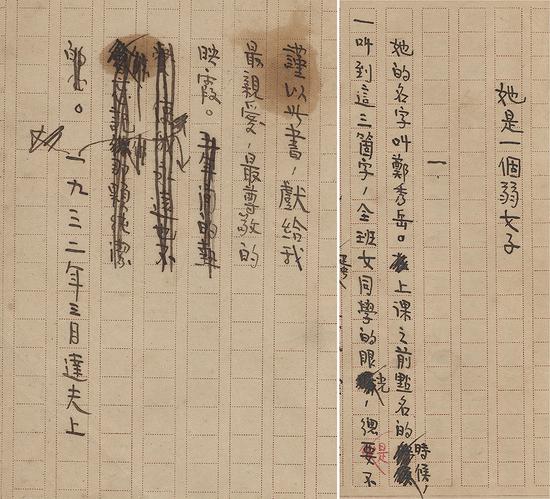 謹以此書,獻給我
最親愛,最尊敬的
映霞。
一九三二年三月達夫上
她是一個弱女子
一
她的名字叫鄭秀岳。上課之前點名的時候,
一叫到這三箇字,全班女同學的眼光,總是要不